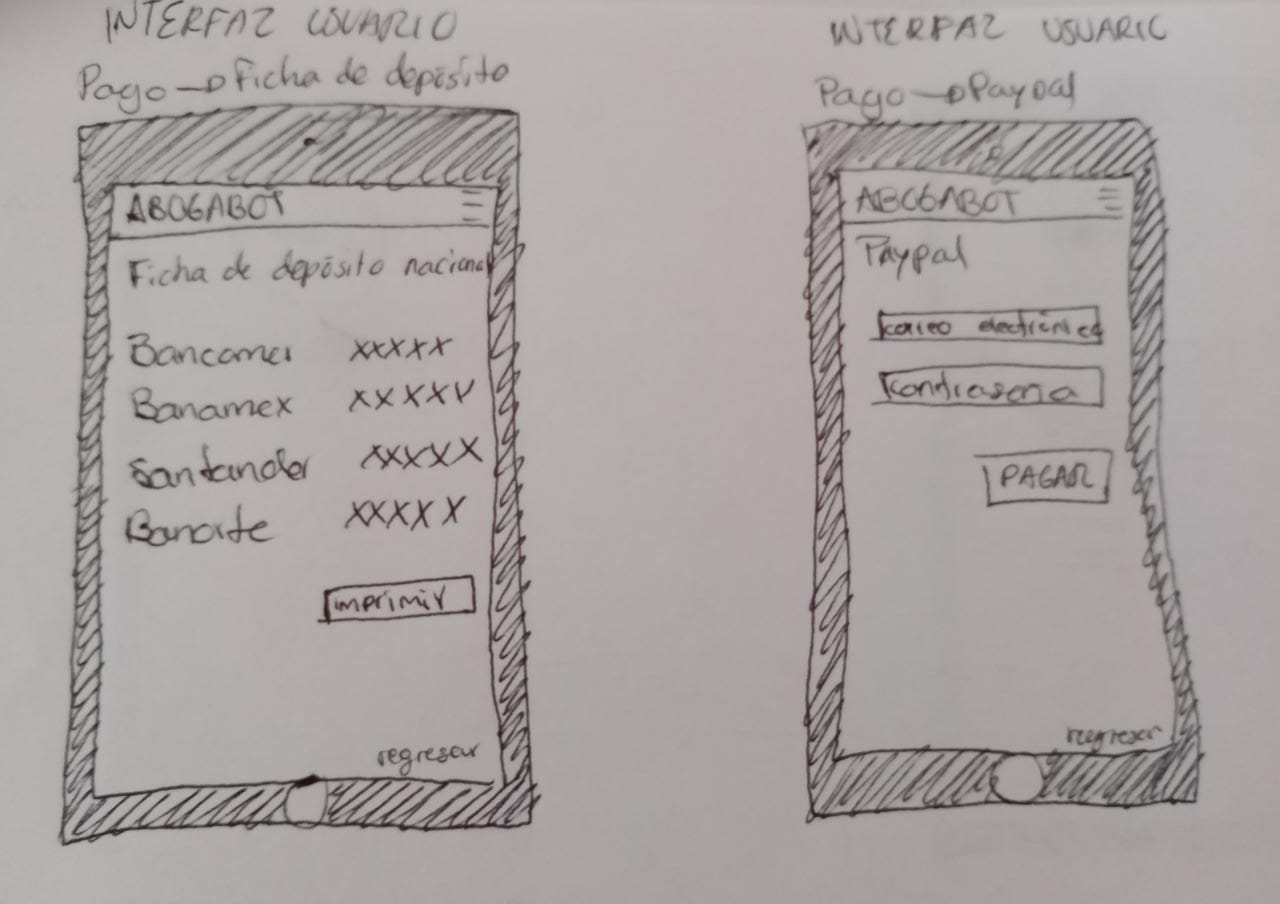 INTERFAZ USUARIO
Pago → Ficha de depósito
ABOGABOT
Ficha de depósito nacional
Bancomer xxxxx
Banamex xxxxx
Santander xxxxx
Banorte xxxxx
imprimir
regresar
INTERFAZ USUARIO
Pago → Paypal
ABOGABOT
Paypal
correo electrónico
contraseña
PAGAR
regresar